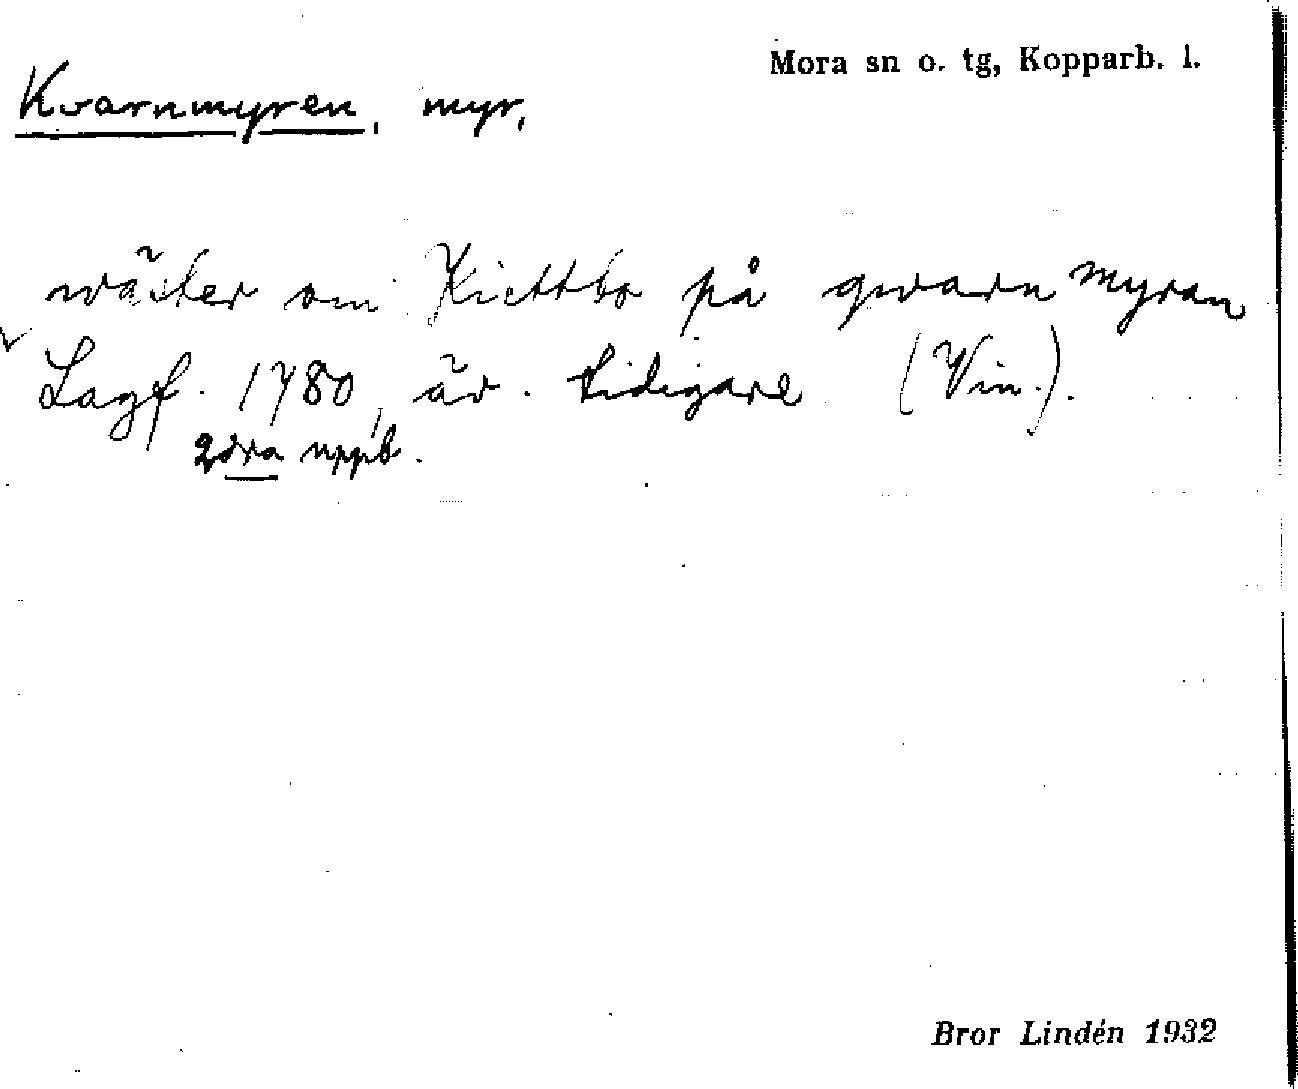 Mora sn o. tg, Kopparb. l.
Kvarnmyren, myr.
wäster om Kiettbo på qwarn myran
Lagf. 1780, är. tidigare (Vin.).
göra uppb.
Bror Lindén 1932